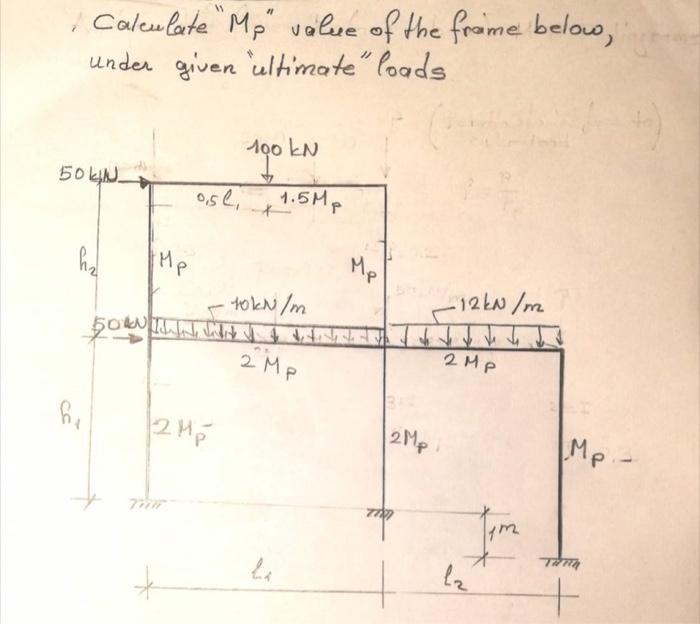 Calculate "Mp" value of the frame below,
under given "ultimate" loads
100 kN
50 kN
0,5 l₁ 1.5Mp
h₂
Mp
Mp
10 kN/m
12 kN/m
50 kN
2 Mp
2 Mp
h₁
2 Mp
2Mp
Mp
1m
l₁
l₂